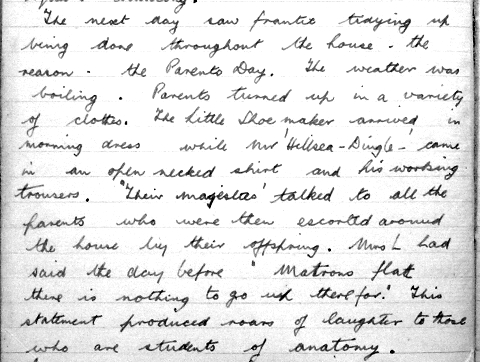 The next day saw frantic tidying up
being done throughout the house - the
reason - the Parents Day. The weather was
boiling. Parents turned up in a variety
of clothes. The Little Shoe maker arrived in
morning dress while Mr 'Hillsea-Dingle-' came
in an open necked shirt and his working
trousers. "Their magestas' talked to all the
parents who were then escorted around
the house by their offspring. Mrs L had
said the day before " Matrons flat
there is nothing to go up there for." This
statement produced roars of laughter to those
who are students of anatomy.